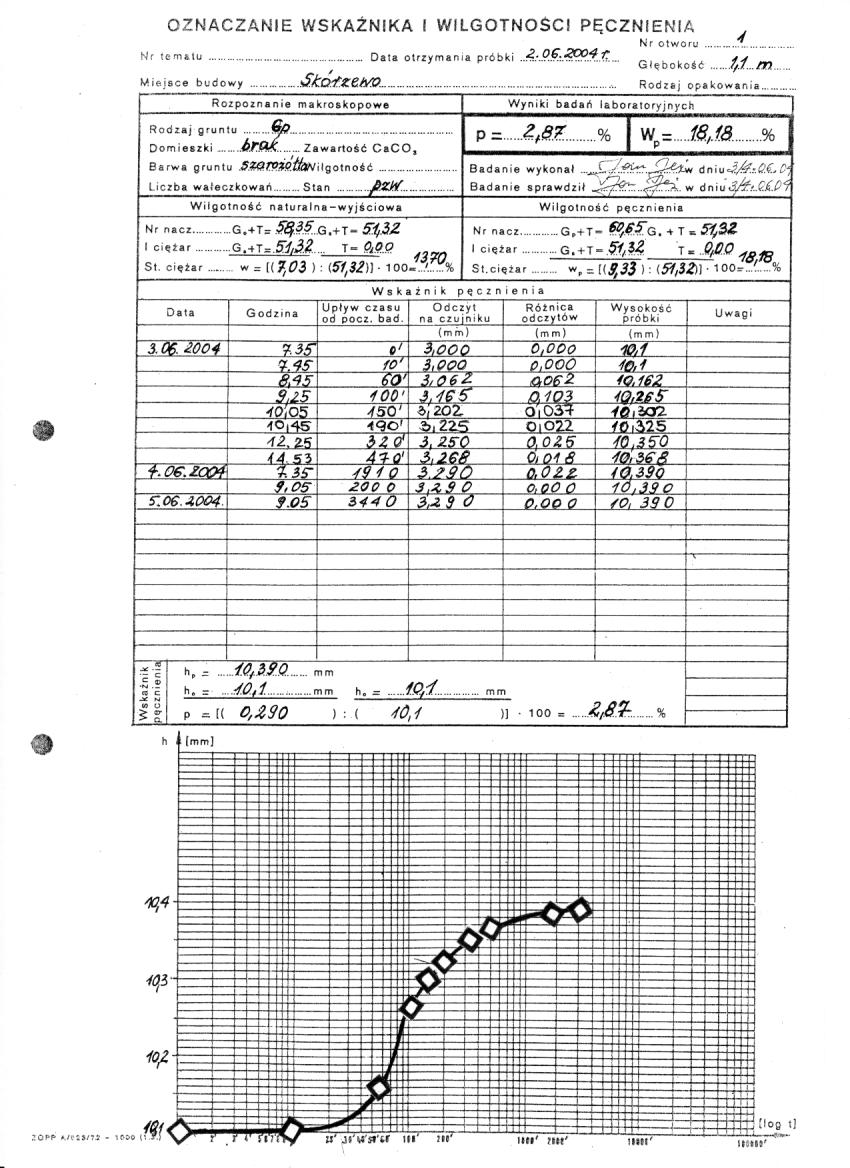 OZNACZANIE WSKAŹNIKA I WILGOTNOŚCI PĘCZNIENIA
Nr otworu 1
Nr tematu Data otrzymania próbki 2.06.2004 r.
Głębokość 1,1 m
Miejsce budowy Skórzewo Rodzaj opakowania
Rozpoznanie makroskopowe Wyniki badań laboratoryjnych
Rodzaj gruntu Gp
p = 2,87 % Wp= 18,18 %
Domieszki brak Zawartość CaCO₃
Barwa gruntu szarożółta Wilgotność Badanie wykonał w dniu 3/4.06.04
Liczba wałeczkowań Stan pzw Badanie sprawdził w dniu 3/4.06.04
Wilgotność naturalna-wyjściowa Wilgotność pęcznienia
Nr nacz. Gₒ+T= 58,35 Gₛ+T= 51,32 Nr nacz. Gp+T= 60,65 Gₛ + T= 51,32
I ciężar Gₛ+T= 51,32 T= 0,00 I ciężar Gₛ+T= 51,32 T= 0,00
St. ciężar w = [(7,03) : (51,32)] · 100= 13,70 % St. ciężar wp = [(9,33) : (51,32)] · 100= 18,18 %
Wskaźnik pęcznienia
Data Godzina Upływ czasu od pocz. bad. Odczyt na czujniku Różnica odczytów Wysokość próbki Uwagi
(mm) (mm) (mm)
3.06.2004 7.35 0' 3,000 0,000 10,1
7.45 10' 3,000 0,000 10,1
8,45 60' 3,062 0,062 10,162
9,25 100' 3,165 0,103 10,265
10,05 150' 3,202 0,037 10,302
10,45 190' 3,225 0,022 10,325
12.25 320' 3,250 0,025 10,350
14.53 470' 3,268 0,018 10,368
4.06.2004 7.35 1910 3.290 0,022 10,390
9.05 2000 3,290 0,000 10,390
5.06.2004. 9.05 3440 3,290 0,000 10,390
Wskaźnik pęcznienia
hp = 10,390 mm
hₒ = 10,1 mm hₒ = 10,1 mm
p = [( 0,290 ) : ( 10,1 )] · 100 = 2,87 %
h [mm]
10,4
10,3
10,2
10,1
[log t]
2' 3' 4' 5' 6' 7' 8' 25' 100' 200' 1000' 2000' 10000' 100000'